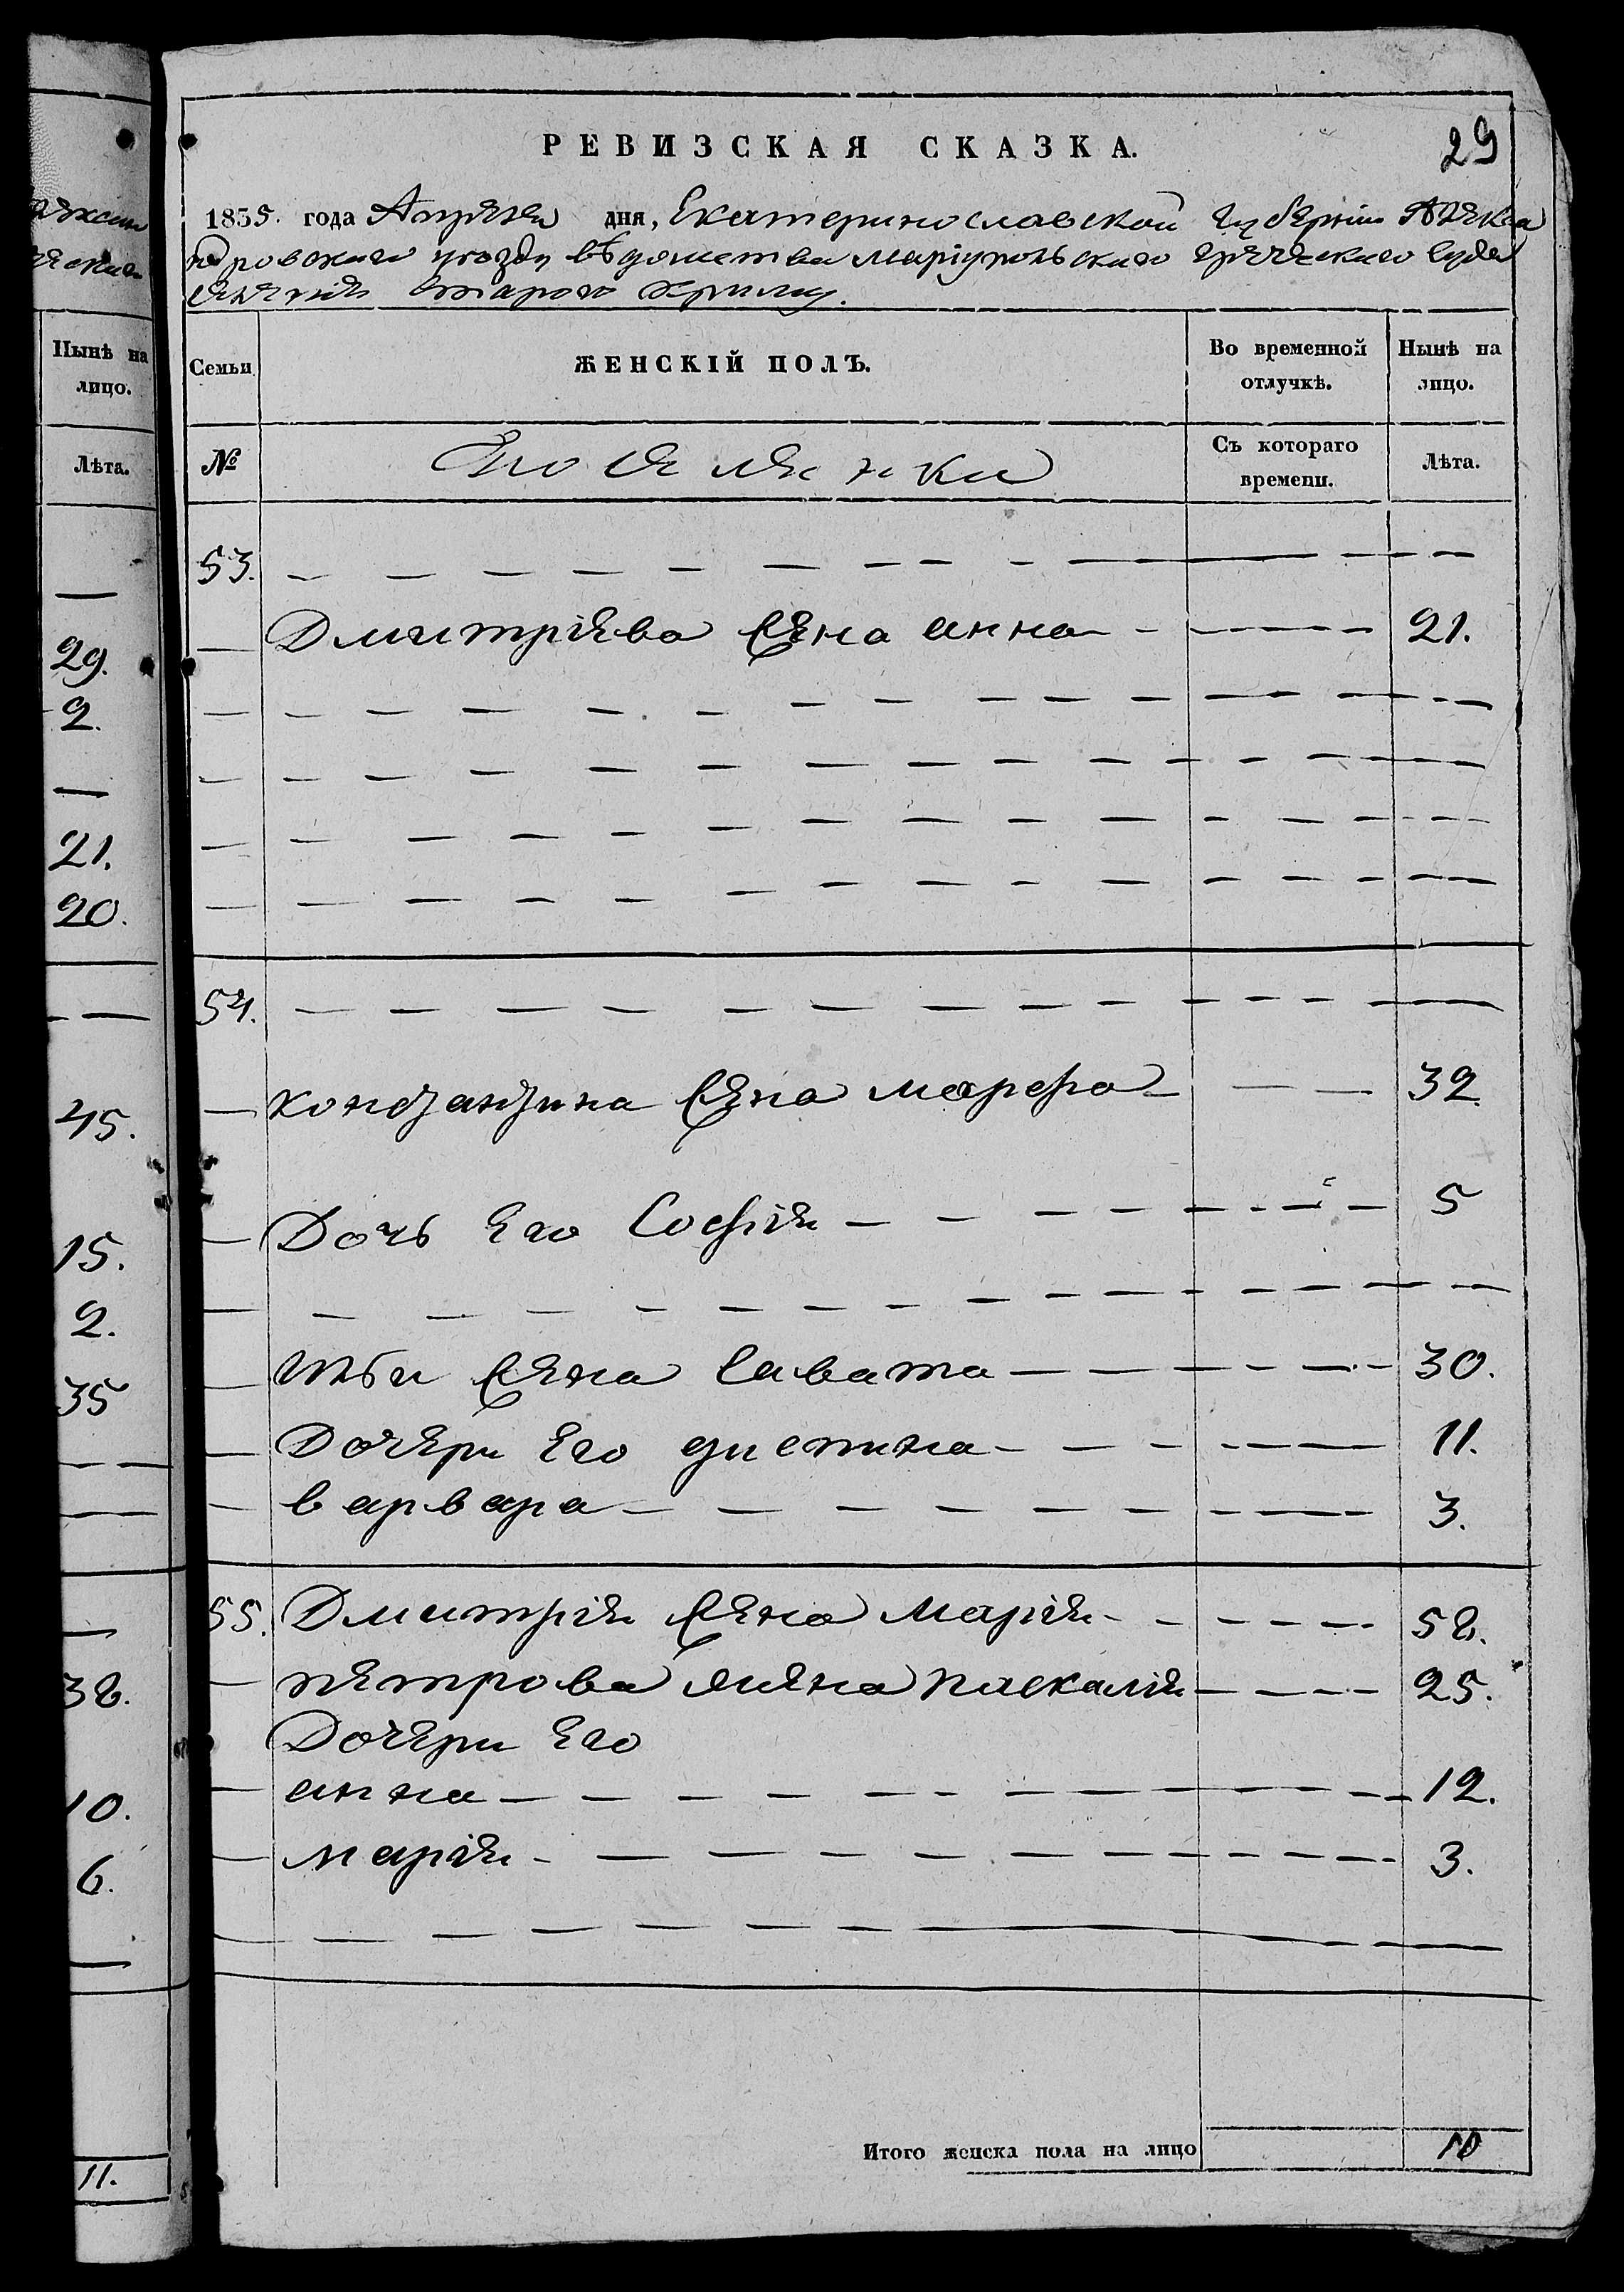 РЕВИЗСКАЯ СКАЗКА.
29
1835. года Апреля дня, Екатеринославской губернии Алекса
ндровского уезду вѣдомства Маріупольского греческого суда
селения Старого Крыму.
Нынѣ на лицо.
Семьи
ЖЕНСКІЙ ПОЛЪ.
Во временной отлучкѣ.
Нынѣ на лицо.
Лѣта.
№
Поселянки
Съ котораго времени.
Лѣта.
53.
Дмитріева жена анна 21.
54.
константина жена марфа 32.
Дочь Его Софія 5
жена Савата 30.
Дочери Его 11.
варвара 3.
55. Дмитрія жена Марія 58.
петрова жена паскалія 25.
Дочери Его
анна 12.
марія 3.
Итого женска пола на лицо 10
29.
2.
21.
20.
45.
15.
2.
35
38.
10.
6.
11.